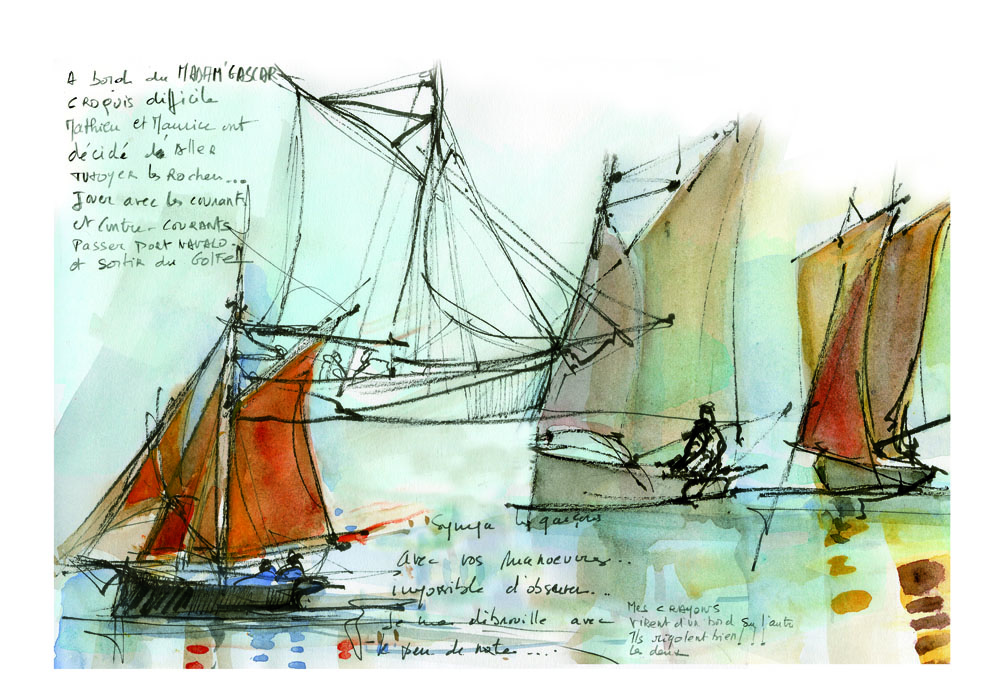 A bord du MADAM'GASCAR
CROQUIS difficile
Mathieu et Maurice ont
décidé d'Aller
TUTOYER les Rochers...
Jouer avec les courants
et Contre-COURANTS
Passer PORT NAVALO.
et Sortir du GOLFE
Sympa les garçons
Avec vos manoeuvres...
impossible d'observer...
Je me débrouille avec
le peu de notes....
Mes CRAYONS
virent d'un bord sur l'autre
Ils rigolent bien!!!
les deux